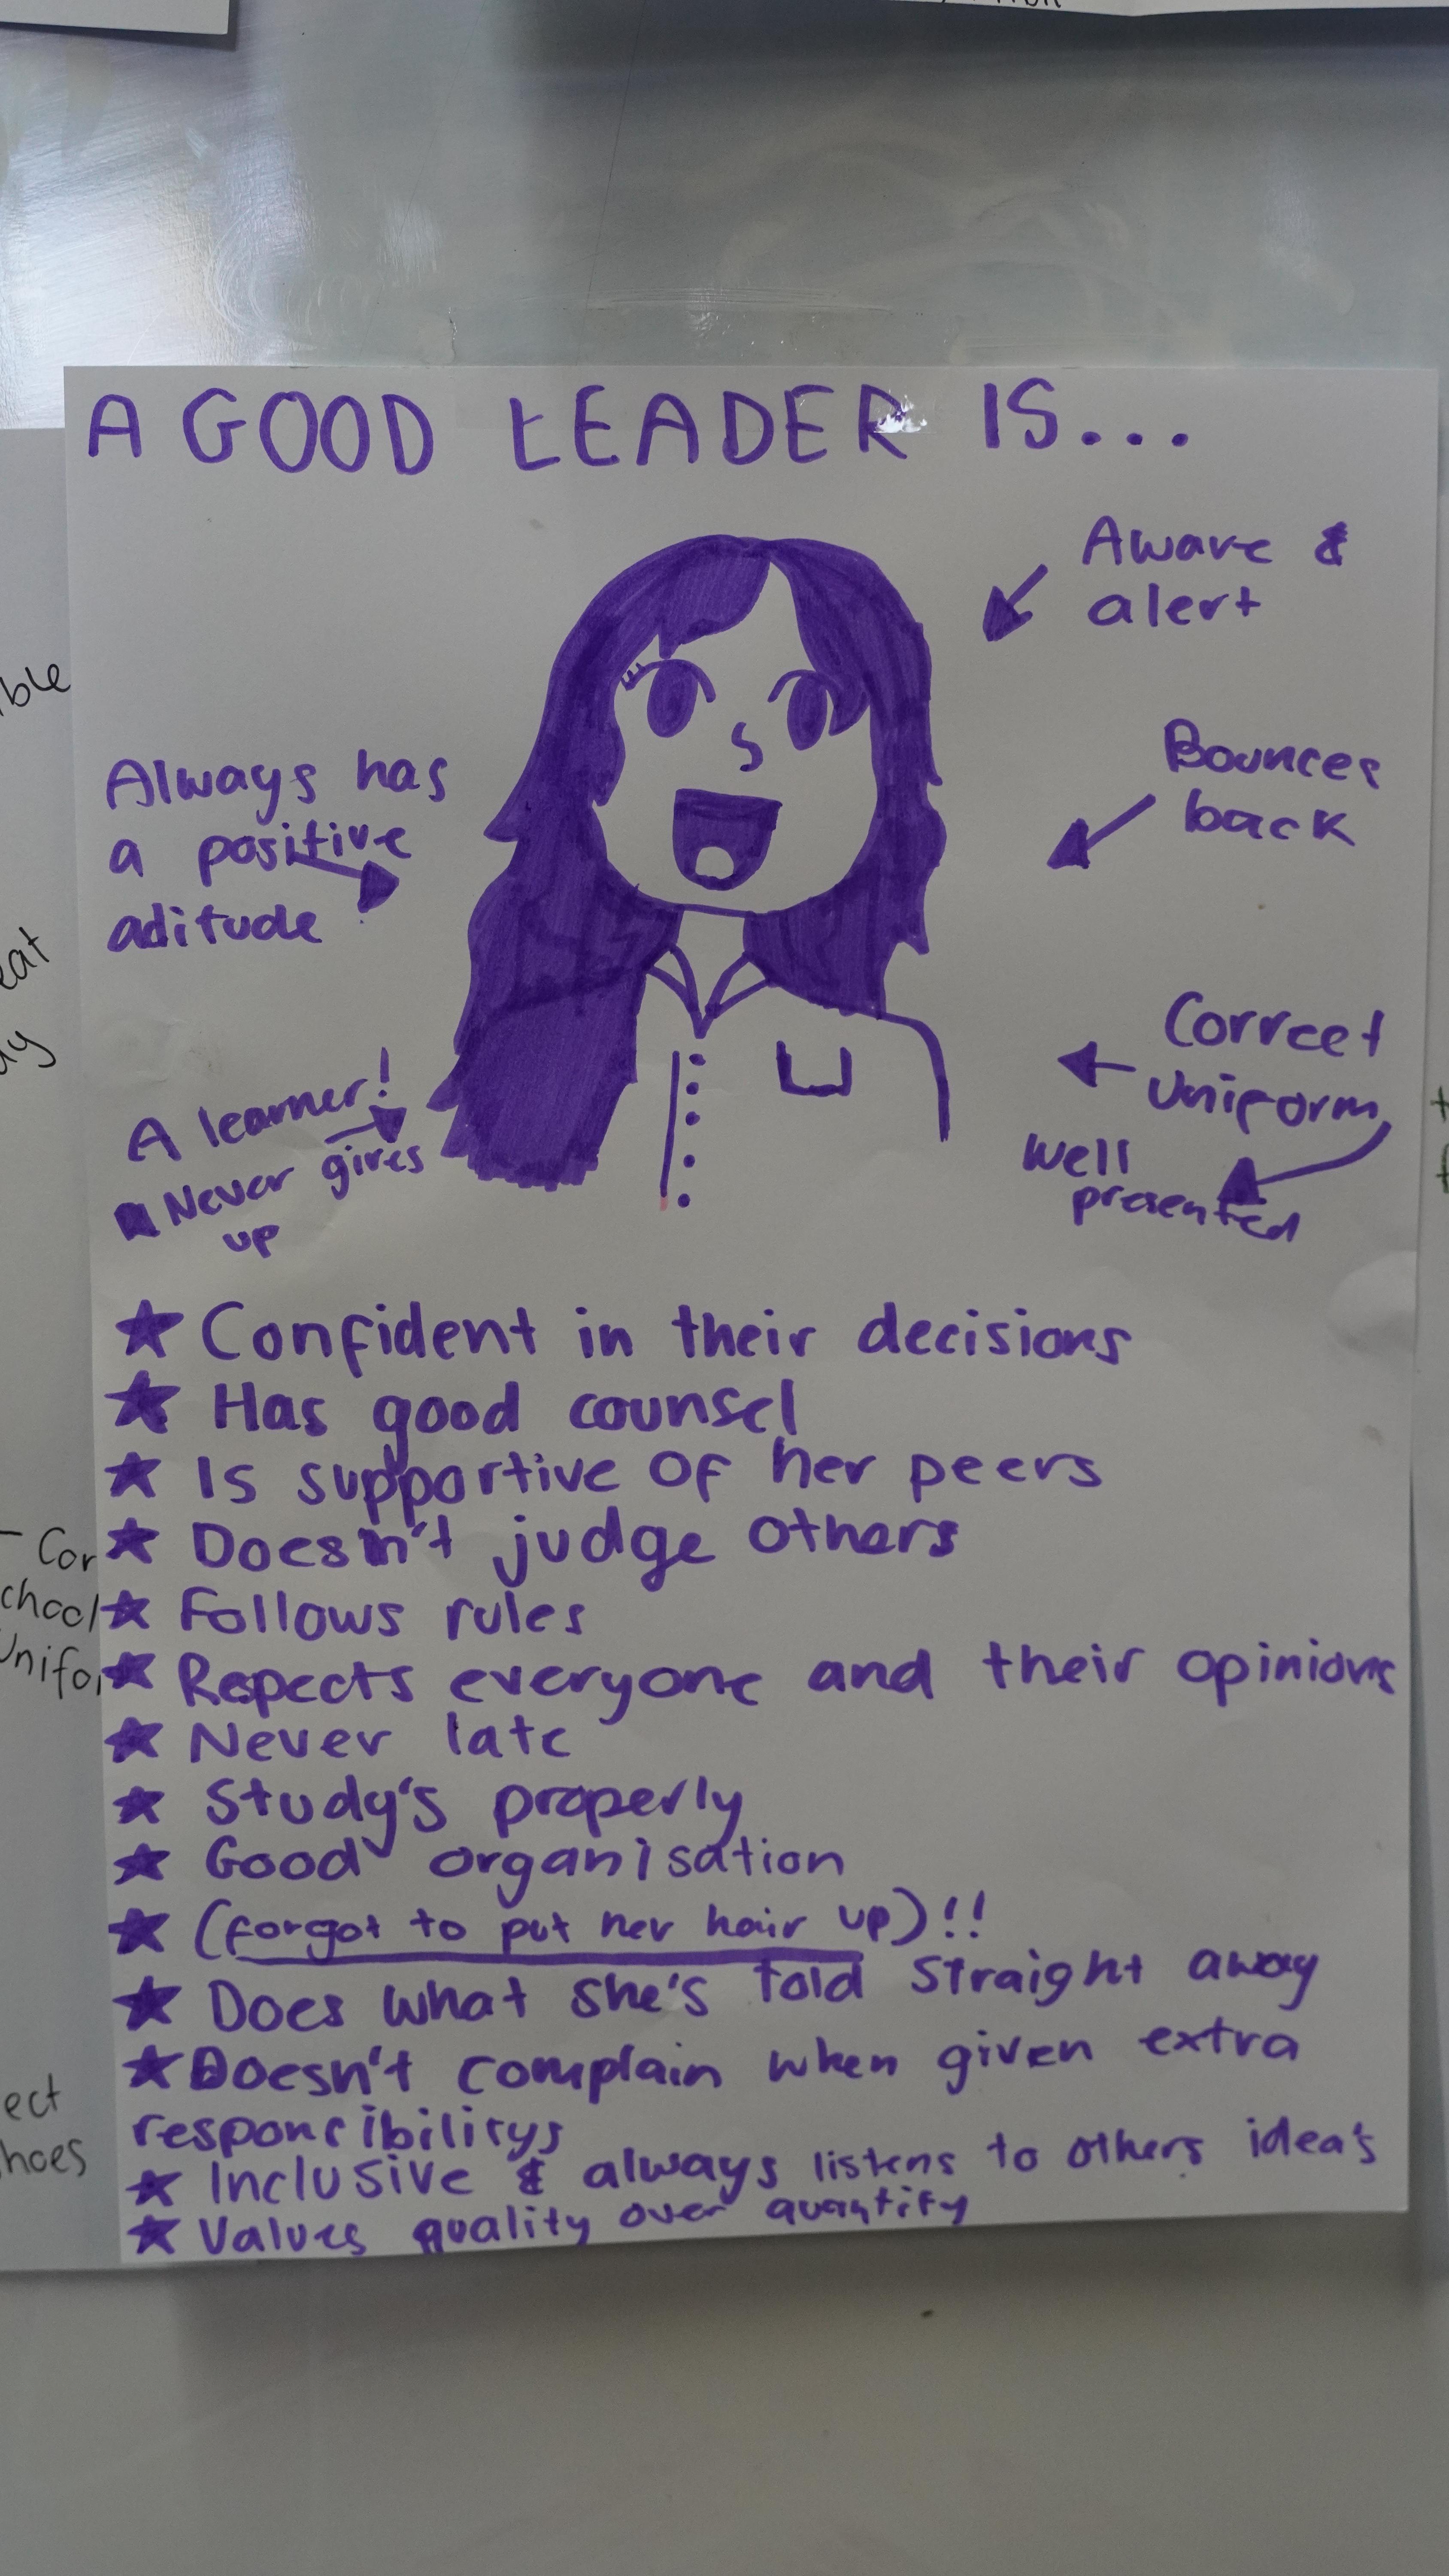 A GOOD LEADER IS...
Aware &
alert
Bounces
back
Always has
a positive
aditude
Correct
Uniform
Well
presented
A learner!
Never gives
up
★ Confident in their decisions
★ Has good counsel
★ Is supportive of her peers
★ Doesn't judge others
★ Follows rules
★ Respects everyone and their opinions
★ Never late
★ Study's properly
★ Good organisation
★ (forgot to put her hair up)!!
★ Does what she's told straight away
★ Doesn't complain when given extra
responcibilitys
★ Inclusive & always listens to others idea's
★ Values quality over quantity
ble
eat
ay
- Cor
chool
Unifor
ect
hoes